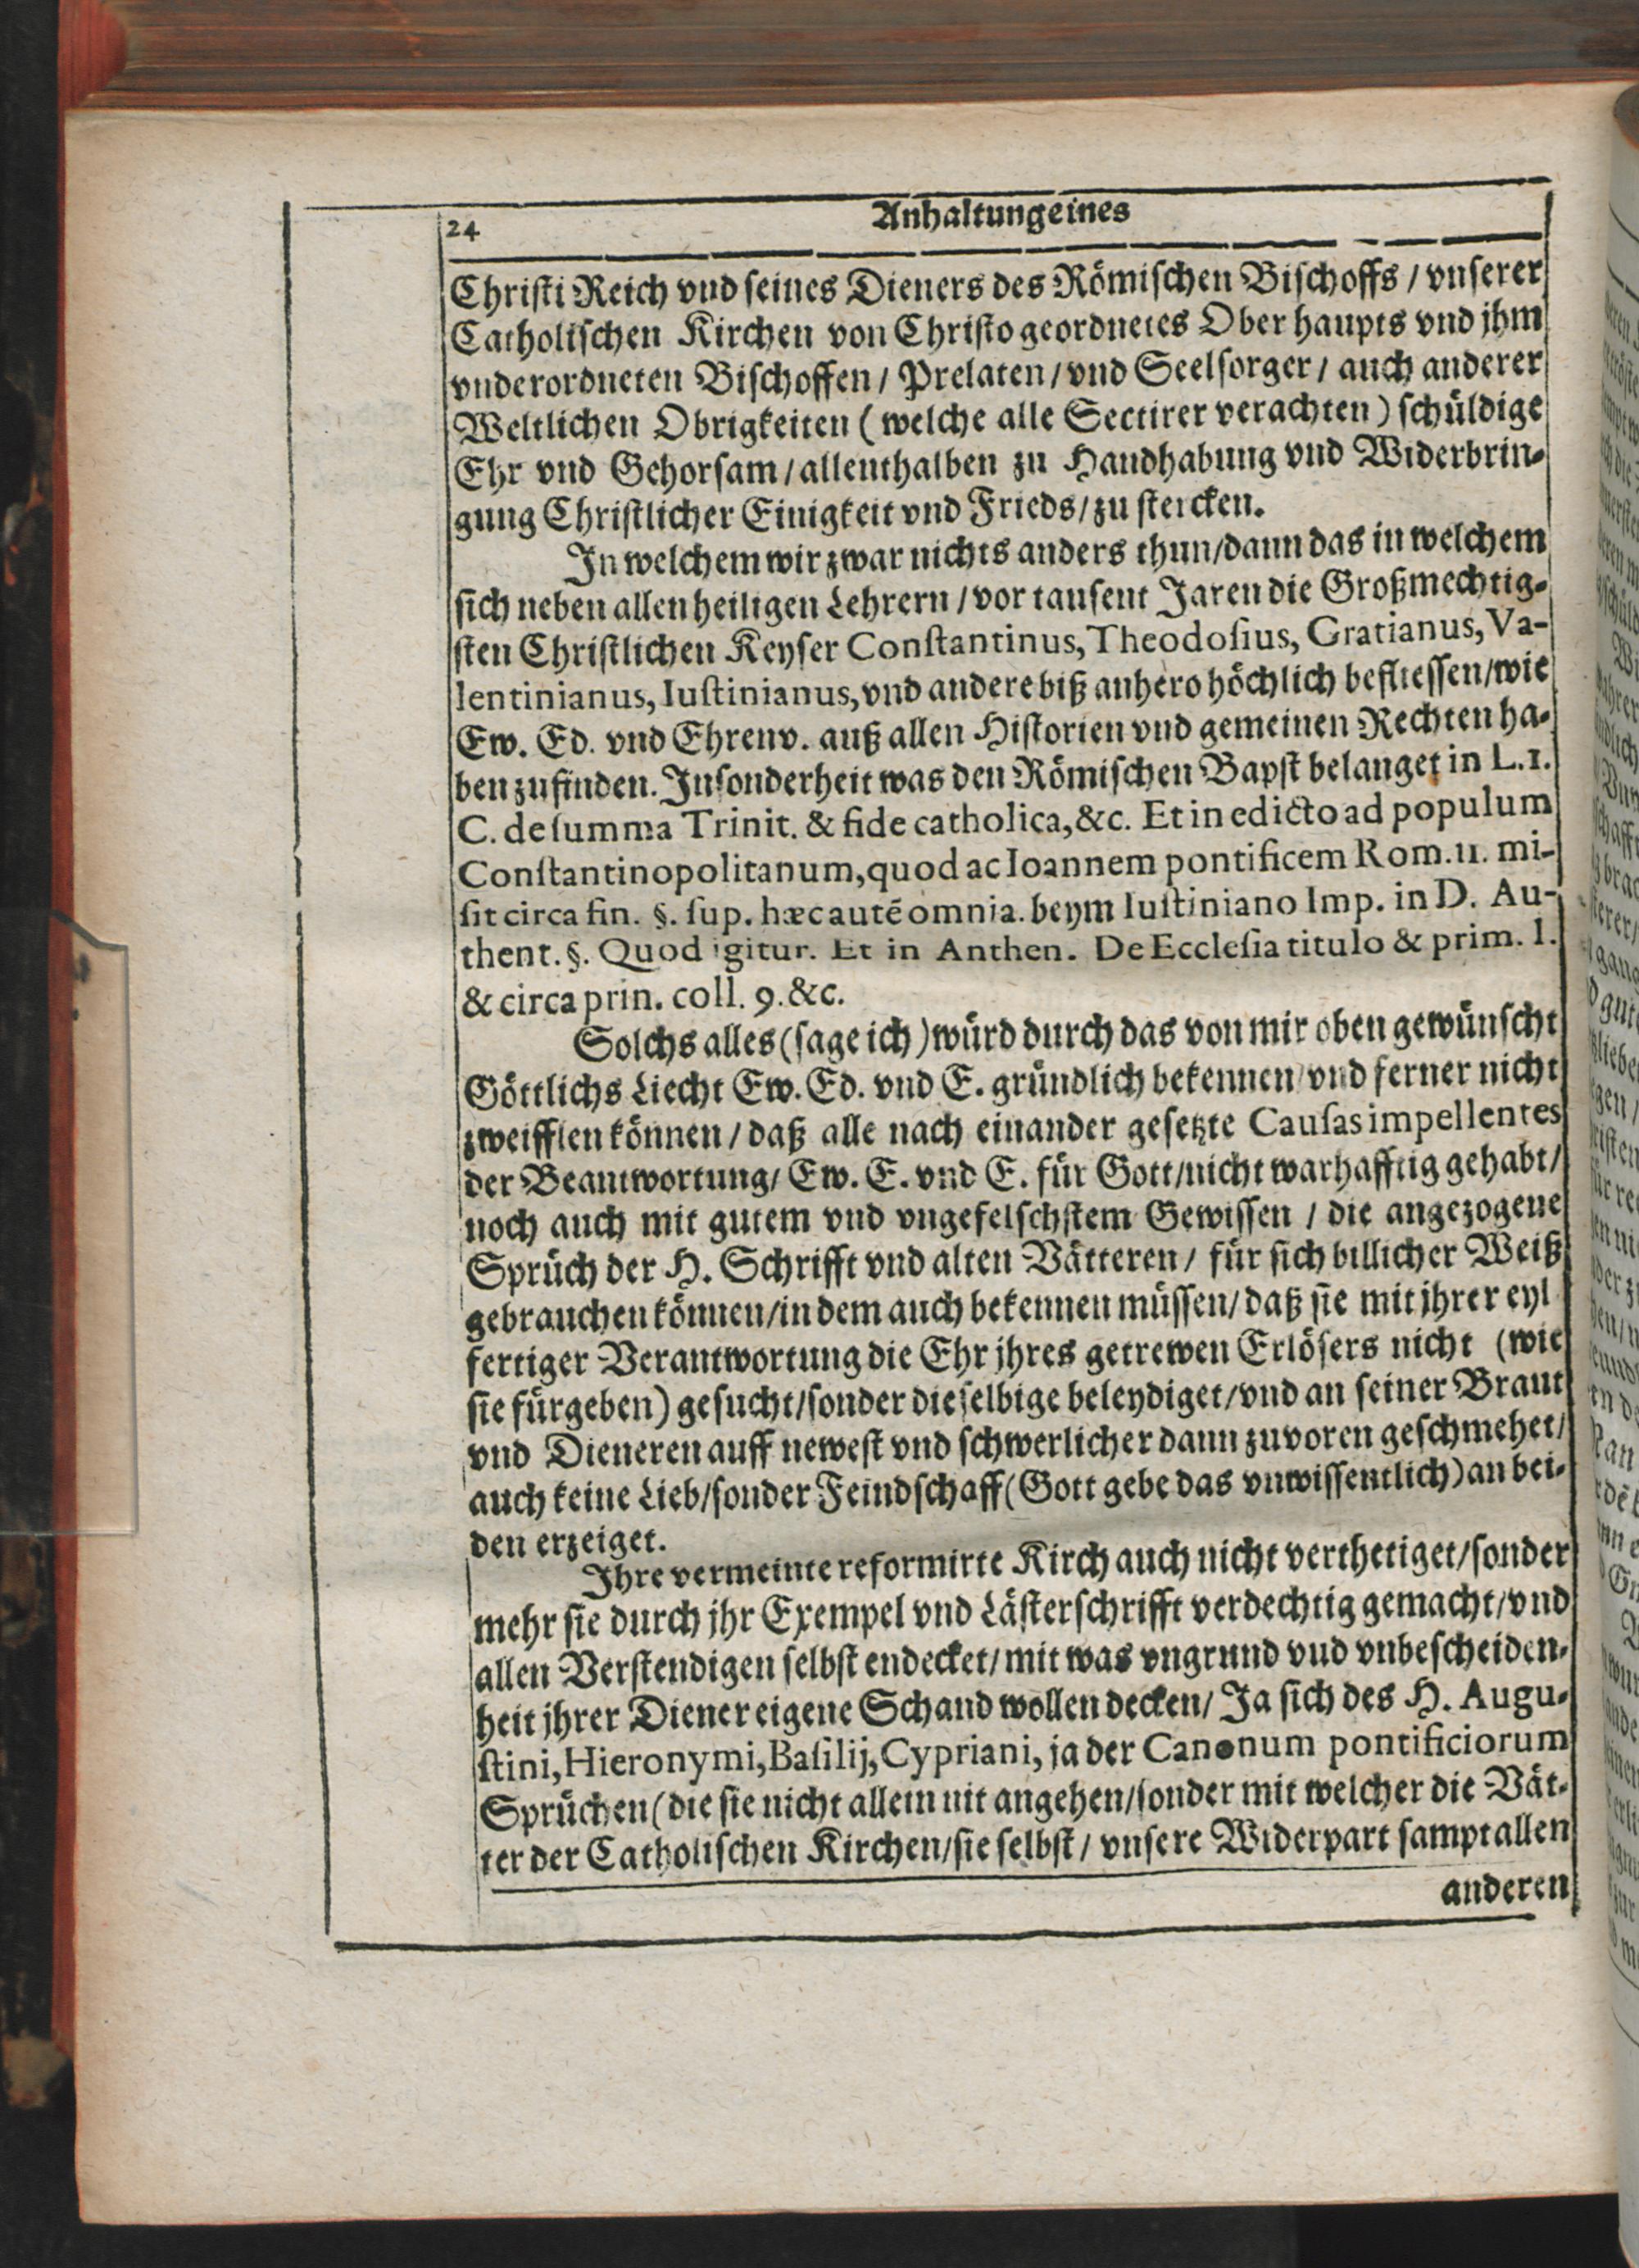 24 Anhaltung eines
Christi Reich vnd seines Dieners des Römischen Bischoffs / vnserer
Catholischen Kirchen von Christo geordnetes Ober haupts vnd jhm
vnderordneten Bischoffen / Prelaten / vnd Seelsorger / auch anderer
Weltlichen Obrigkeiten (welche alle Sectirer verachten) schüldige
Ehr vnd Gehorsam / allenthalben zu Handhabung vnd Widerbrin-
gung Christlicher Einigkeit vnd Frieds / zu stercken.
In welchem wir zwar nichts anders thun / dann das in welchem
sich neben allen heiligen Lehrern / vor tausent Jaren die Großmechtig-
sten Christlichen Keyser Constantinus, Theodosius, Gratianus, Va-
lentinianus, Iustinianus, vnd andere biß anhero höchlich befliessen / wie
Ew. Ed. vnd Ehrenv. auß allen Historien vnd gemeinen Rechten ha-
ben zufinden. Insonderheit was den Römischen Bapst belanget in L. 1.
C. de summa Trinit. & fide catholica, &c. Et in edicto ad populum
Constantinopolitanum, quod ac Ioannem pontificem Rom. 11. mi-
sit circa fin. §. sup. hæc autē omnia. beym Iustiniano Imp. in D. Au-
thent. §. Quod igitur. Et in Anthen. De Ecclesia titulo & prim. l.
& circa prin. coll. 9. &c.
Solchs alles (sage ich) würd durch das von mir oben gewünscht
Göttlichs Liecht Ew. Ed. vnd E. gründlich bekennen / vnd ferner nicht
zweifflen können / daß alle nach einander gesetzte Causas impellentes
der Beantwortung / Ew. E. vnd E. für Gott / nicht warhafftig gehabt /
noch auch mit gutem vnd vngefelschstem Gewissen / die angezogene
Sprüch der H. Schrifft vnd alten Vätteren / für sich billicher Weiß
gebrauchen können / in dem auch bekennen müssen / daß sie mit jhrer eyl
fertiger Verantwortung die Ehr jhres getrewen Erlösers nicht (wie
sie fürgeben) gesucht / sonder dieselbige beleydiget / vnd an seiner Braut
vnd Dieneren auff newest vnd schwerlicher dann zuvoren geschmehet /
auch keine Lieb / sonder Feindschaff (Gott gebe das vnwissentlich) an bei-
den erzeiget.
Ihre vermeinte reformirte Kirch auch nicht verthetiget / sonder
mehr sie durch jhr Exempel vnd Lästerschrifft verdechtig gemacht / vnd
allen Verstendigen selbst endecket / mit was vngrund vnd vnbescheiden-
heit jhrer Diener eigene Schand wollen decken / Ja sich des H. Augu-
stini, Hieronymi, Basilij, Cypriani, ja der Canonum pontificiorum
Sprüchen (die sie nicht allein nit angehen / sonder mit welcher die Vät-
ter der Catholischen Kirchen / sie selbst / vnsere Widerpart sampt allen
anderen